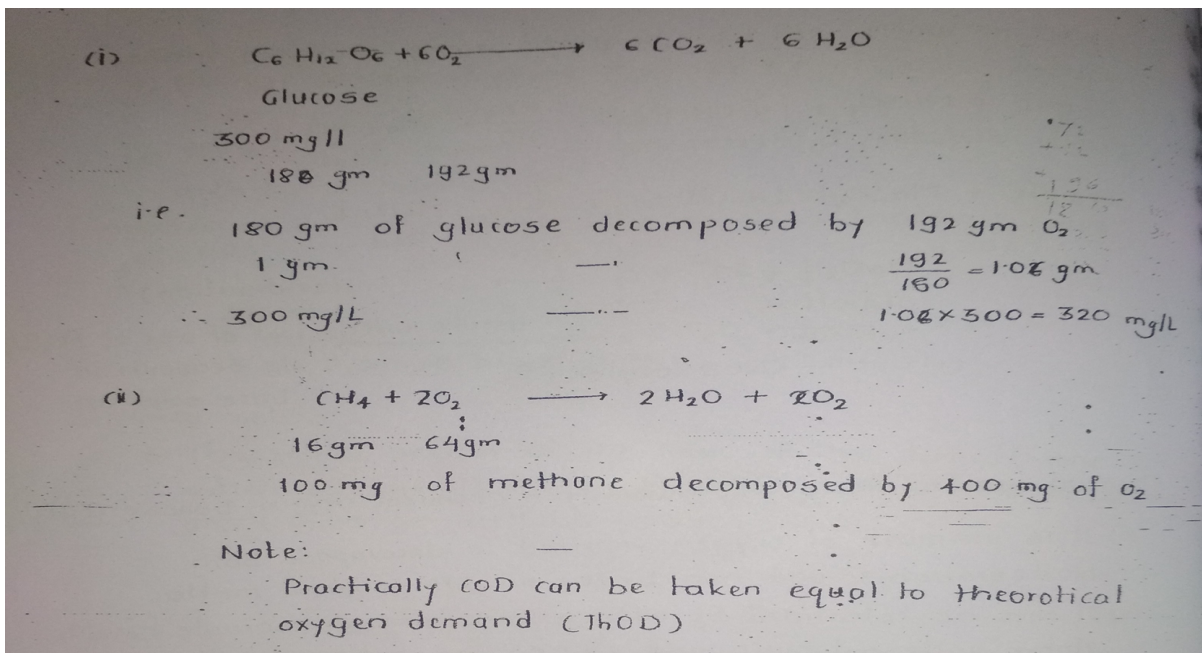 (i) C6 H12 O6 + 6O2 ⟶ 6 CO2 + 6 H2O
Glucose
300 mg/l
180 gm 192 gm
i.e. 180 gm of glucose decomposed by 192 gm O2
1 gm. —" 192/180 = 1.06 gm
∴ 300 mg/L —"— 1.06 × 300 = 320 mg/L
(ii) CH4 + 2O2 ⟶ 2 H2O + 2O2
16 gm 64 gm
100 mg of methone decomposed by 400 mg of O2
Note: —
Practically COD can be taken equal to theorotical
oxygen demand (ThOD)